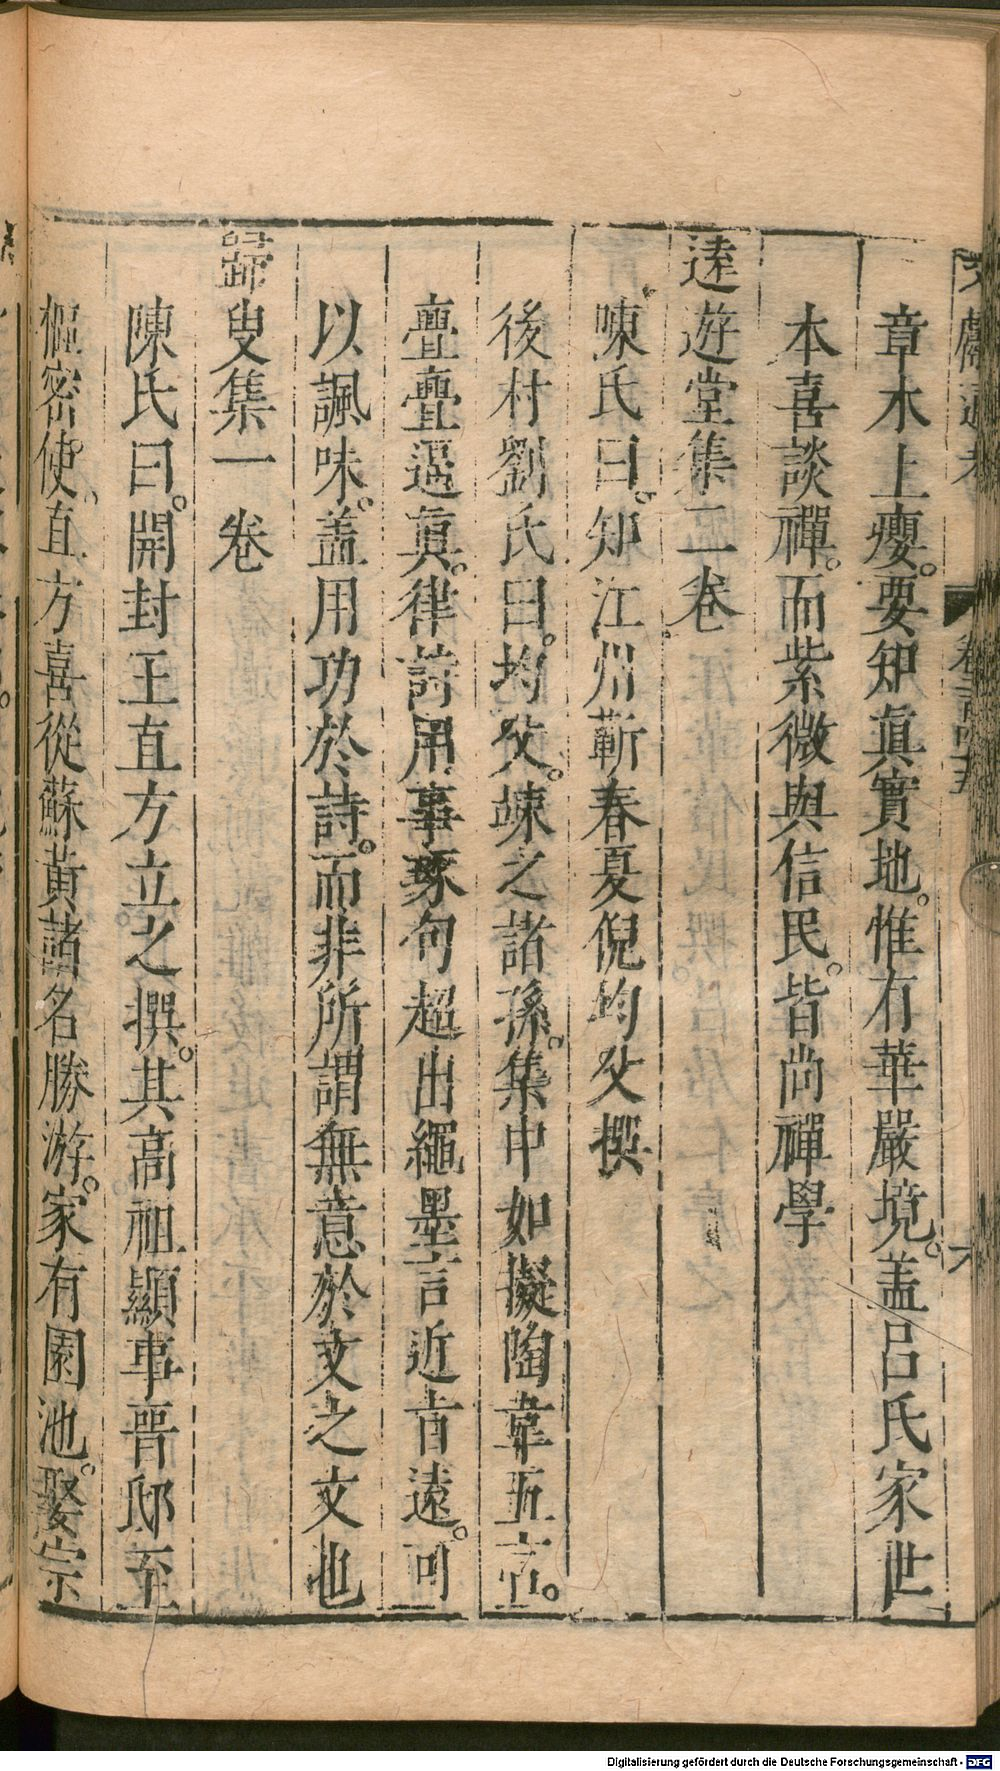 文獻通考 卷二百三十五 六
章水上癭。要知眞實地。惟有華嚴境。盖吕氏家世
本喜談禪。而紫微與信民。皆尚禪學
逺遊堂集二卷
陳氏曰。知江州蘄春夏倪均父撰
後村劉氏曰。均父。竦之諸孫。集中如擬陶韋五言。
亹亹逼眞。律詩用事琢句超出繩墨言近㫖遠。可
以諷味。盖用功於詩。而非所謂無意於文之文也
歸叟集一卷
陳氏曰。開封王直方立之撰。其高祖顯事晋邸至
樞密使。直方喜從蘇黄諸名勝游。家有園池。娶宗
Digitalisierung gefördert durch die Deutsche Forschungsgemeinschaft - DFG